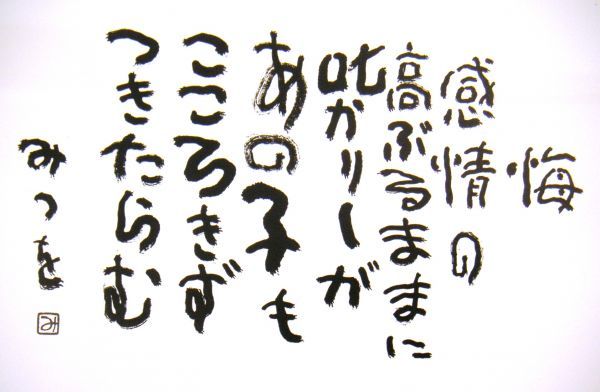 悔
感情の
高ぶるままに
叱かりしが
あの子も
こころきず
つきたらむ
みつを
み